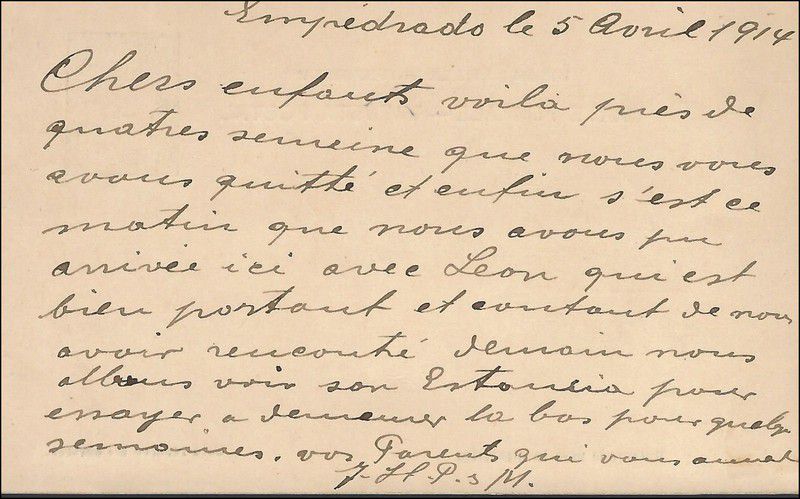 Empédrado le 5 Avril 1914
Chers enfants voila près de
quatres semeine que nous vous
avons quitté et enfin s'est ce
matin que nous avons pu
arrivée ici avec Leon qui est
bien portant et contant de nous
avoir rencontré demain nous
allons voir son Estancia pour
essayer a demeurer la bas pour quelqe
semaines. vos Parents qui vous aiment